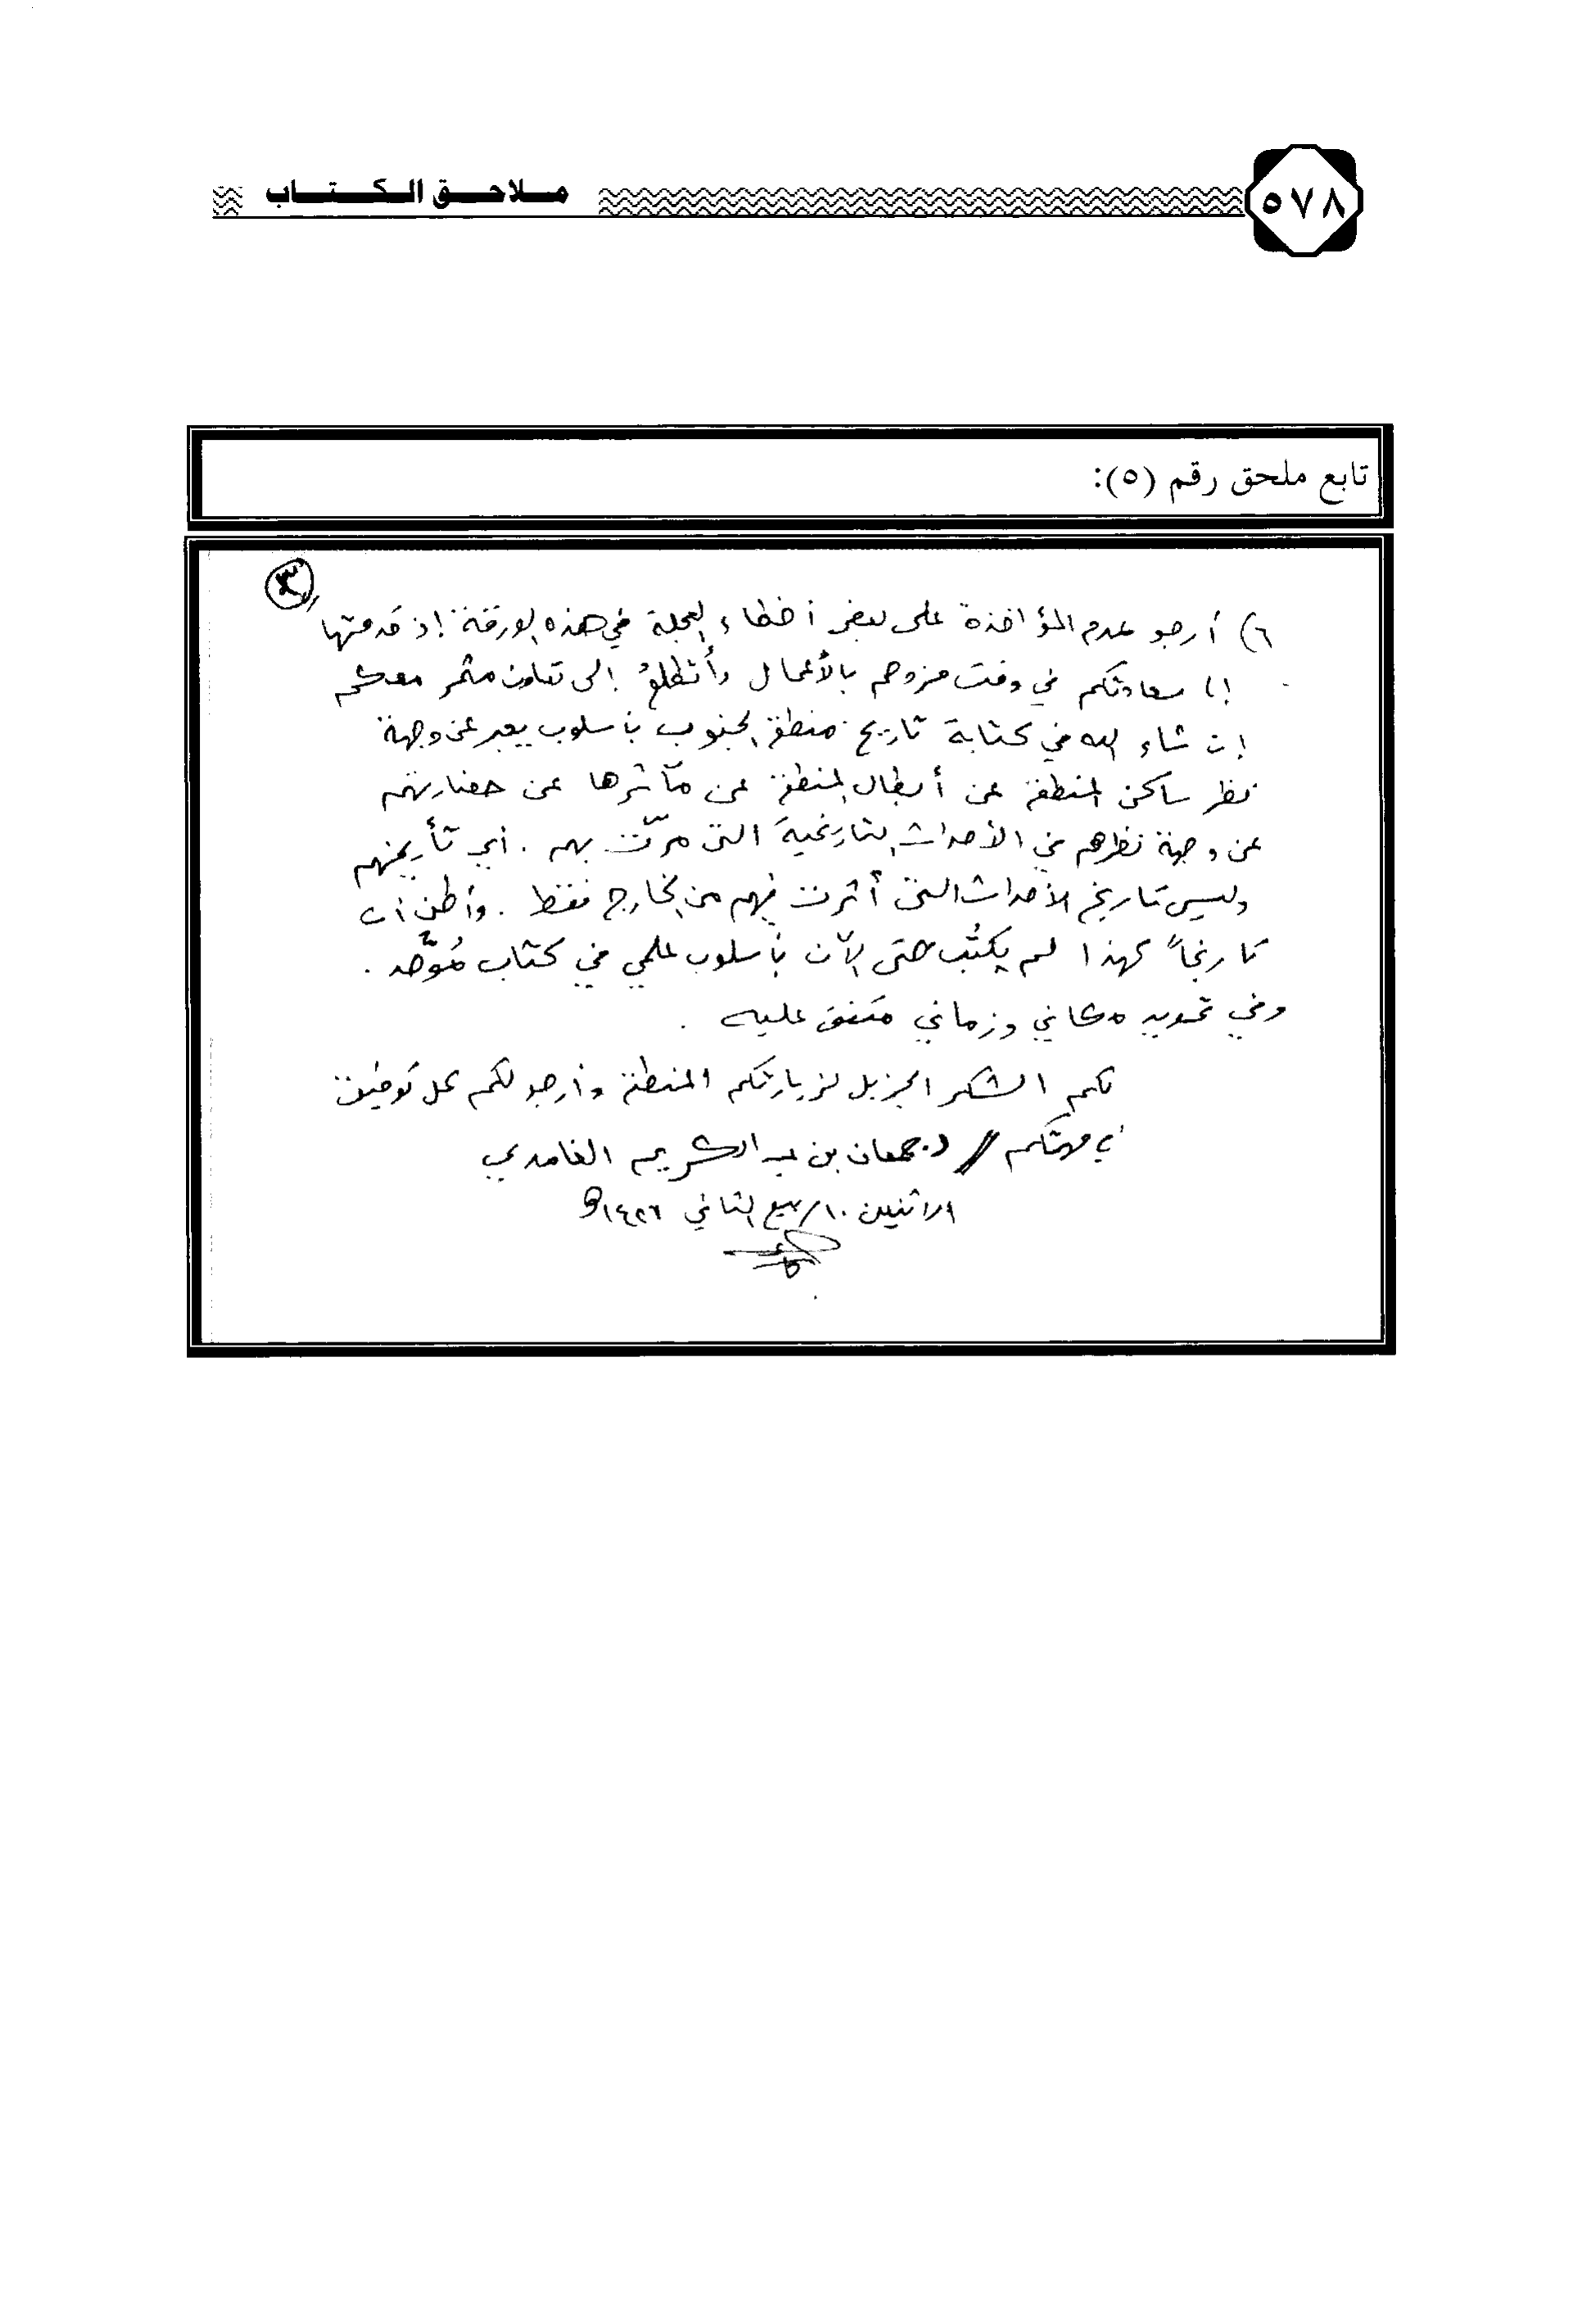 ٥٧٨
ملاحق الكتاب
تابع ملحق رقم (٥):
٣
٦) أرجو عدم المؤاخذة على بعض أخطاء العجلة في هذه الورقة إذ قدمتها
إلى سعادتكم في وقت مزدحم بالأعمال وأتطلعُ إلى تعاون مثمر معكم
إن شاء الله في كتابة تاريخ منطقة الجنوب بأسلوب يعبر عن وجهة
نظر ساكن المنطقة عن أبطال المنطقة عن مآثرها عن حضارتهم
عن وجهة نظرهم في الأحداث التاريخية التي مرّت بهم . أي تأريخهم
وليس تاريخ الأحداث التي أثرت فيهم من الخارج فقط . وأظن أن
تاريخاً كهذا لم يكتب حتى الآن بأسلوب علمي في كتاب مُوحّد .
وفي تحديد مكاني وزماني متفق عليه .
لكم الشكر الجزيل لزيارتكم المنطقة وأرجو لكم كل توفيق
في مهمتكم // د. جمعان بن عبد الكريم الغامدي
الاثنين ١٠/ ربيع الثاني ١٤٢٦هـ